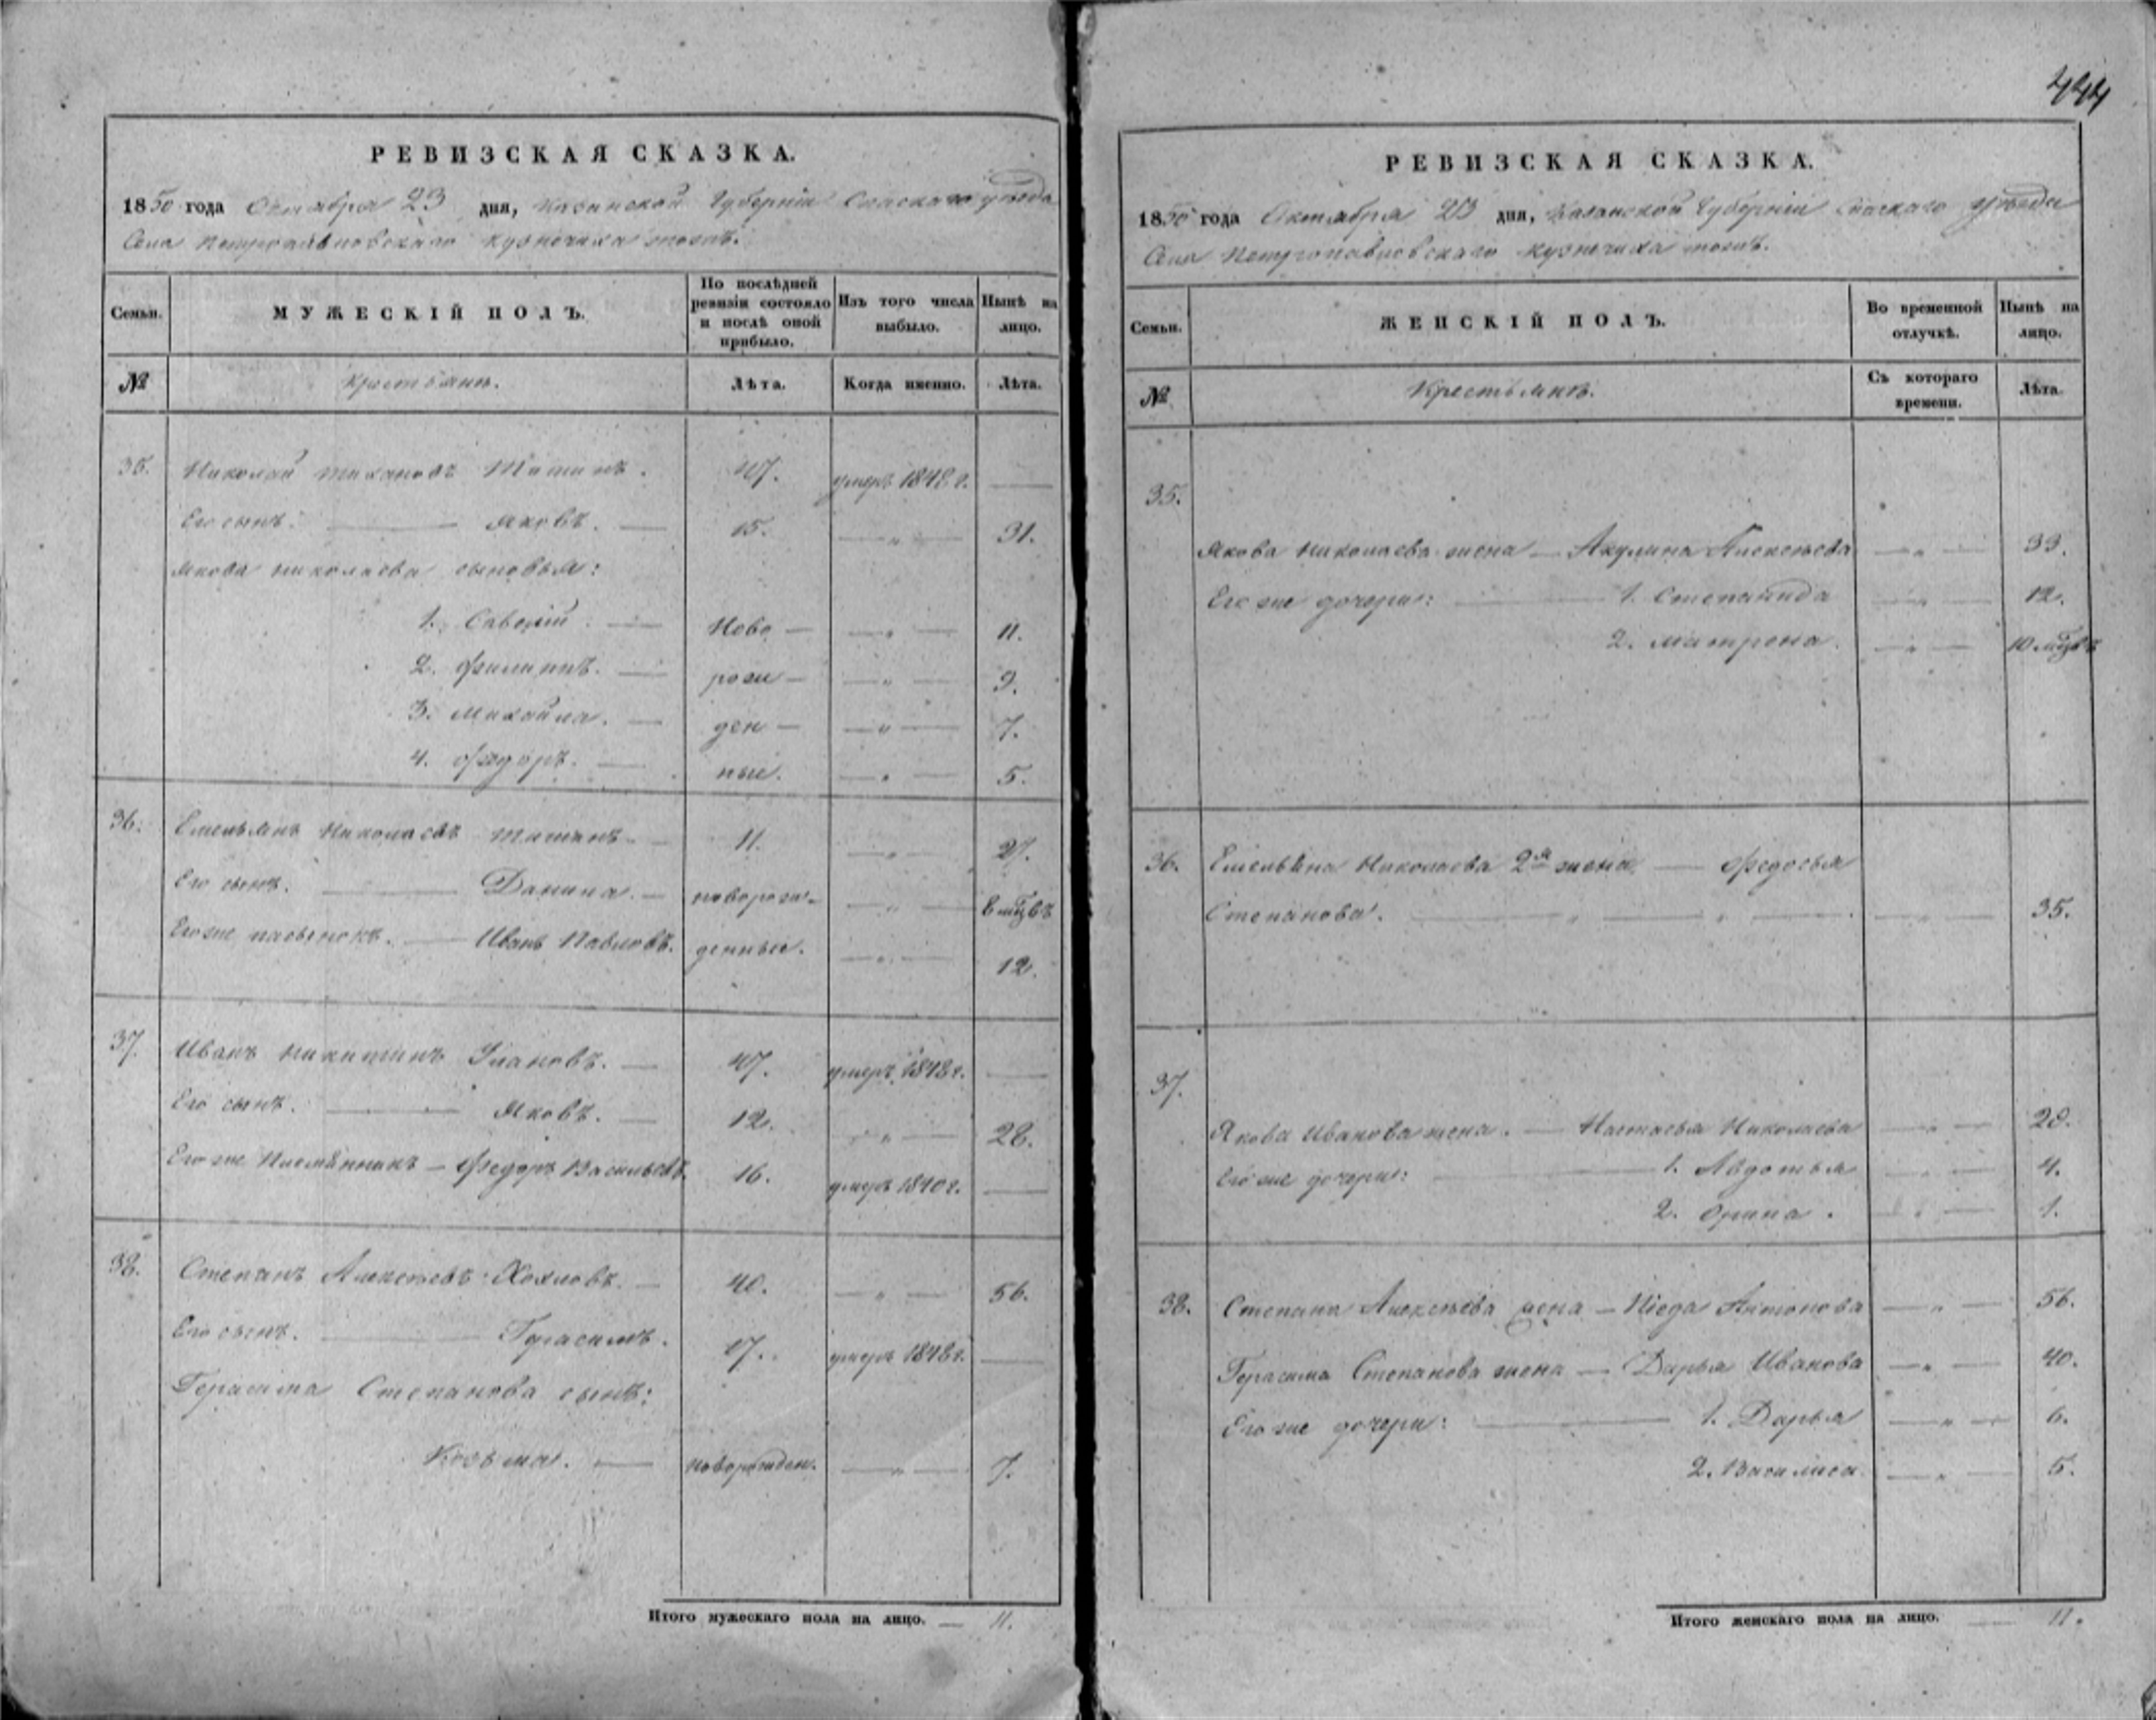 444
РЕВИЗСКАЯ СКАЗКА.
1850 года Октября 23 дня, Казанской Губерніи Спаскаго уѣзда
Села Петропавловскаго Кузнечиха тожъ.
Семьи.
МУЖЕСКІЙ ПОЛЪ.
По послѣдней ревизіи состояло и послѣ оной прибыло.
Изъ того числа выбыло.
Нынѣ на лицо.
№
Крестьянъ.
Лѣта.
Когда именно.
Лѣта.
35. Николай Тихановъ 47. умеръ 1848 г. —
Его сынъ. — Яковъ. — 15. — „ — 31.
Якова Николаева сыновья:
1. Савелій. — Ново — — „ — 11.
2. Филиппъ. — рож — — „ — 9.
3. Михайла. — ден — — „ — 7.
4. Ѳедоръ. — ные. — „ — 5.
36. Емельянъ Николаевъ — 11. — „ —
Его сынъ. — Данила. — новорож- — „ — 8 мцвъ
Его же пасынокъ. — Иванъ Павловъ. денные. — „ — 12.
37. Иванъ Никитинъ Улановъ. — 47. умеръ 1848 г. —
Его сынъ. — Яковъ. — 12. — „ — 28.
Его же Племянникъ — Ѳедоръ Васильевъ. 16. умеръ 1840 г. —
38. Степанъ Алексѣевъ Хохловъ. — 40. — „ — 56.
Его сынъ. — Герасимъ. 17. умеръ 1848 г. —
Герасима Степанова сынъ:
Козьма. — новорожден. — „ — 7.
Итого мужескаго пола на лицо. — 11.
РЕВИЗСКАЯ СКАЗКА.
1850 года Октября 23 дня, Казанской Губерніи Спаскаго уѣзда
Села Петропавловскаго Кузнечиха тожъ.
Семьи.
ЖЕНСКІЙ ПОЛЪ.
Во временной отлучкѣ.
Нынѣ на лицо.
№
Крестьянъ.
Съ котораго времени.
Лѣта.
35.
Якова Николаева жена — Акулина Алексѣева — „ — 33.
Его же дочери: — 1. Степанида — „ — 12.
2. Матрена. — „ — 10 мцвъ
36. Емельяна Николаева 2я жена — Ѳедосья
Степанова. — „ — „ — — „ — 35.
37.
Якова Иванова жена. — Настасья Николаева — „ — 28.
Его же дочери: — 1. Авдотья — „ — 4.
2. Орина. — „ — 1.
38. Степана Алексѣева жена — Антонова — „ — 56.
Герасима Степанова жена — Дарья Иванова — „ — 40.
Его же дочери: — 1. Дарья — „ — 6.
2. Василиса — „ — 5.
Итого женскаго пола на лицо. — 11.